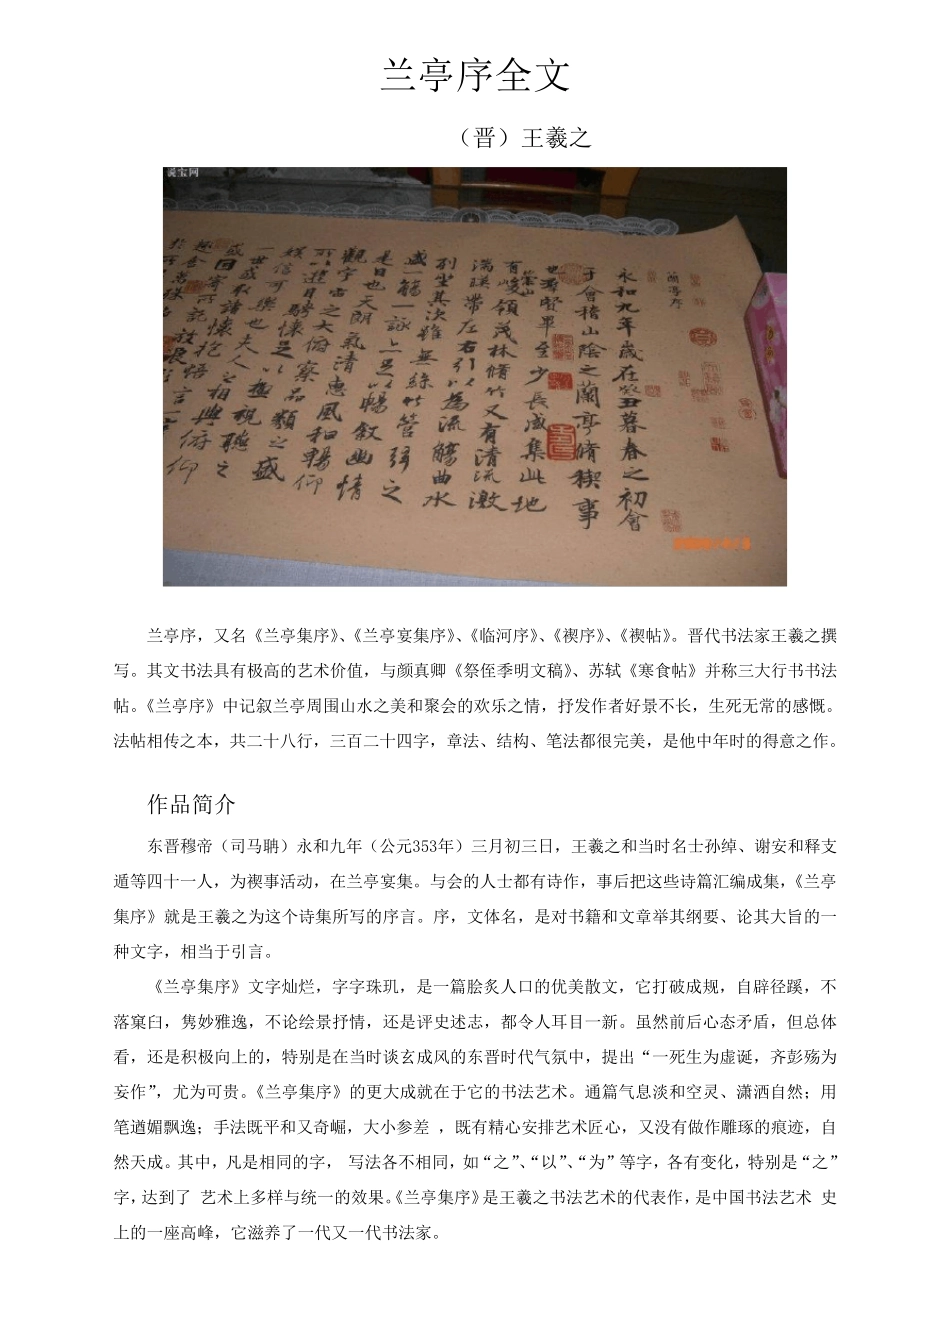 兰亭序全文
（晋）王羲之
说宝网
蘭亭序
永和九年歲在癸丑暮春之初會
于會稽山陰之蘭亭脩稧事
也羣賢畢至少長咸集此地
有崇山峻領茂林脩竹又有清流激
湍暎帶左右引以為流觴曲水
列坐其次雖無絲竹管弦之
盛一觴一詠亦足以暢敘幽情
是日也天朗氣清惠風和暢仰
觀宇宙之大俯察品類之盛
所以遊目騁懷足以極視聽之
娛信可樂也夫人之相與俯仰
一世或取諸懷抱悟言一
兰亭序，又名《兰亭集序》、《兰亭宴集序》、《临河序》、《禊序》、《禊帖》。晋代书法家王羲之撰
写。其文书法具有极高的艺术价值，与颜真卿《祭侄季明文稿》、苏轼《寒食帖》并称三大行书书法
帖。《兰亭序》中记叙兰亭周围山水之美和聚会的欢乐之情，抒发作者好景不长，生死无常的感慨。
法帖相传之本，共二十八行，三百二十四字，章法、结构、笔法都很完美，是他中年时的得意之作。
作品简介
东晋穆帝（司马聃）永和九年（公元353年）三月初三日，王羲之和当时名士孙绰、谢安和释支
遁等四十一人，为禊事活动，在兰亭宴集。与会的人士都有诗作，事后把这些诗篇汇编成集，《兰亭
集序》就是王羲之为这个诗集所写的序言。序，文体名，是对书籍和文章举其纲要、论其大旨的一
种文字，相当于引言。
《兰亭集序》文字灿烂，字字珠玑，是一篇脍炙人口的优美散文，它打破成规，自辟径蹊，不
落窠臼，隽妙雅逸，不论绘景抒情，还是评史述志，都令人耳目一新。虽然前后心态矛盾，但总体
看，还是积极向上的，特别是在当时谈玄成风的东晋时代气氛中，提出“一死生为虚诞，齐彭殇为
妄作”，尤为可贵。《兰亭集序》的更大成就在于它的书法艺术。通篇气息淡和空灵、潇洒自然；用
笔遒媚飘逸；手法既平和又奇崛，大小参差 ，既有精心安排艺术匠心，又没有做作雕琢的痕迹，自
然天成。其中，凡是相同的字， 写法各不相同，如“之”、“以”、“为”等字，各有变化，特别是“之”
字，达到了 艺术上多样与统一的效果。《兰亭集序》是王羲之书法艺术的代表作，是中国书法艺术 史
上的一座高峰，它滋养了一代又一代书法家。